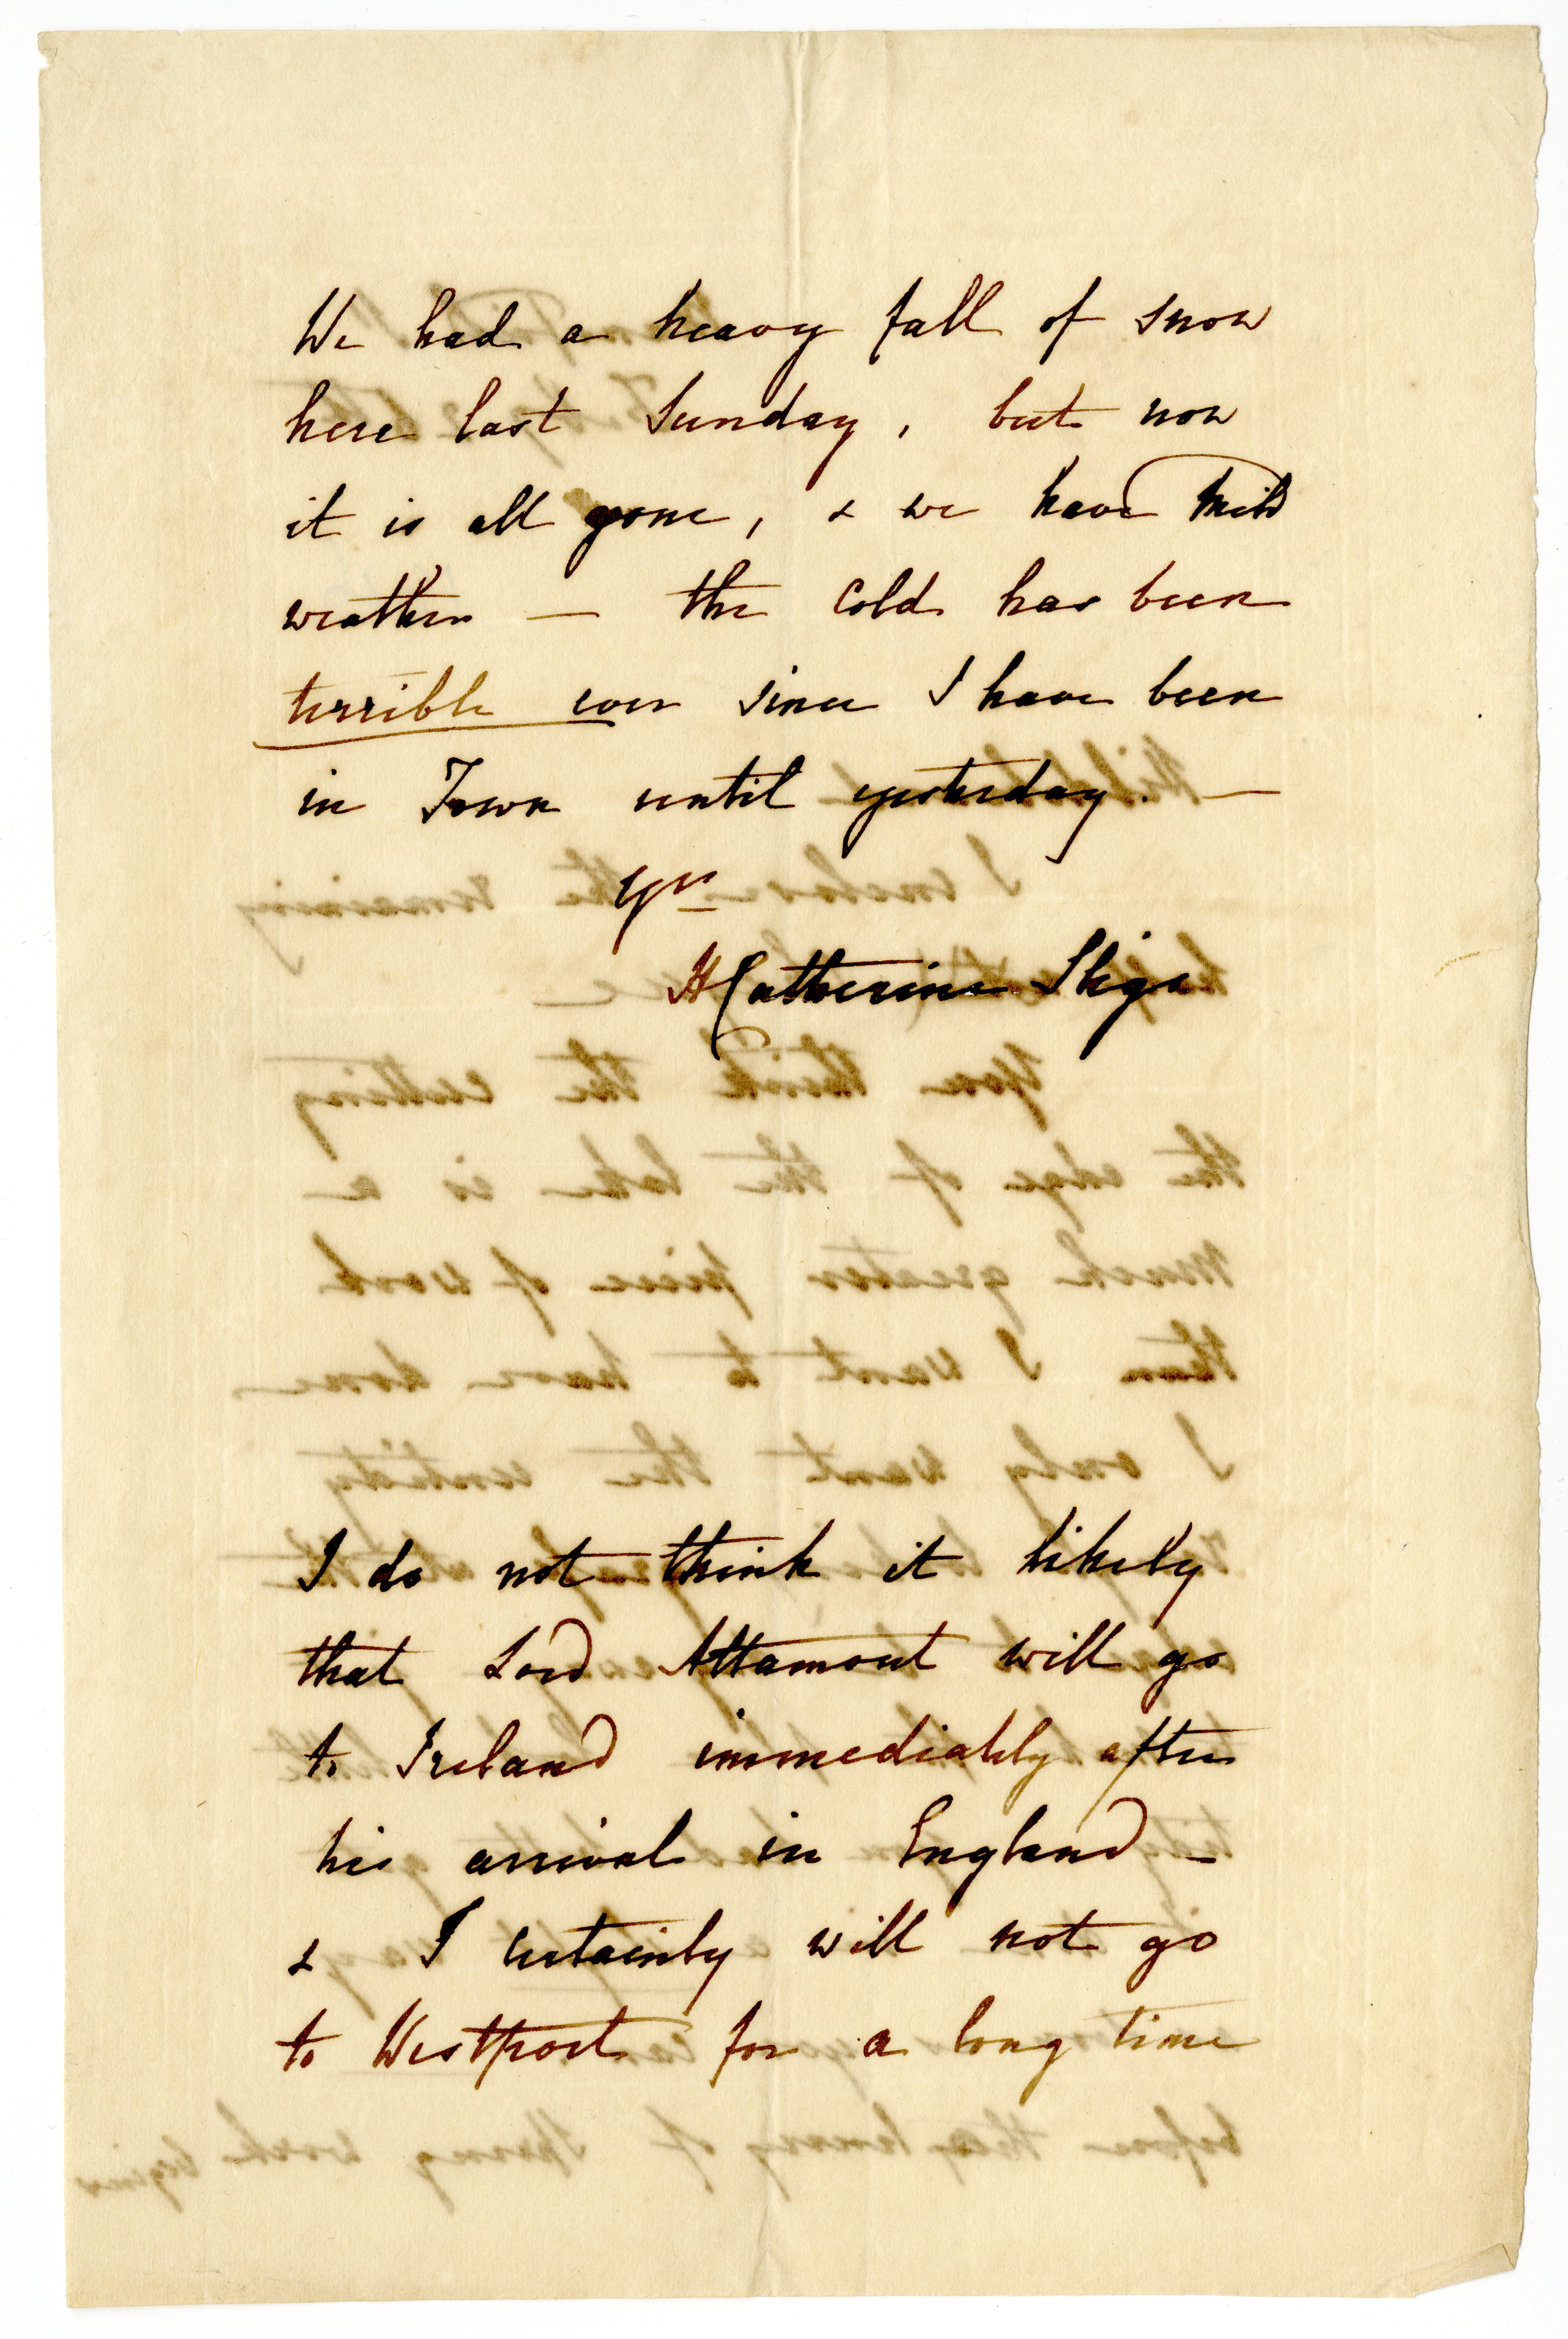 We had a heavy fall of snow
here last Sunday, but now
it is all gone, & we have mild
weather — the cold has been
terrible ever since I have been
in Town until yesterday. —
Yrs
HCatherine Sligo
I do not think it likely
that Lord Altamont will go
to Ireland immediately after
his arrival in England —
& I certainly will not go
to Westport for a long time